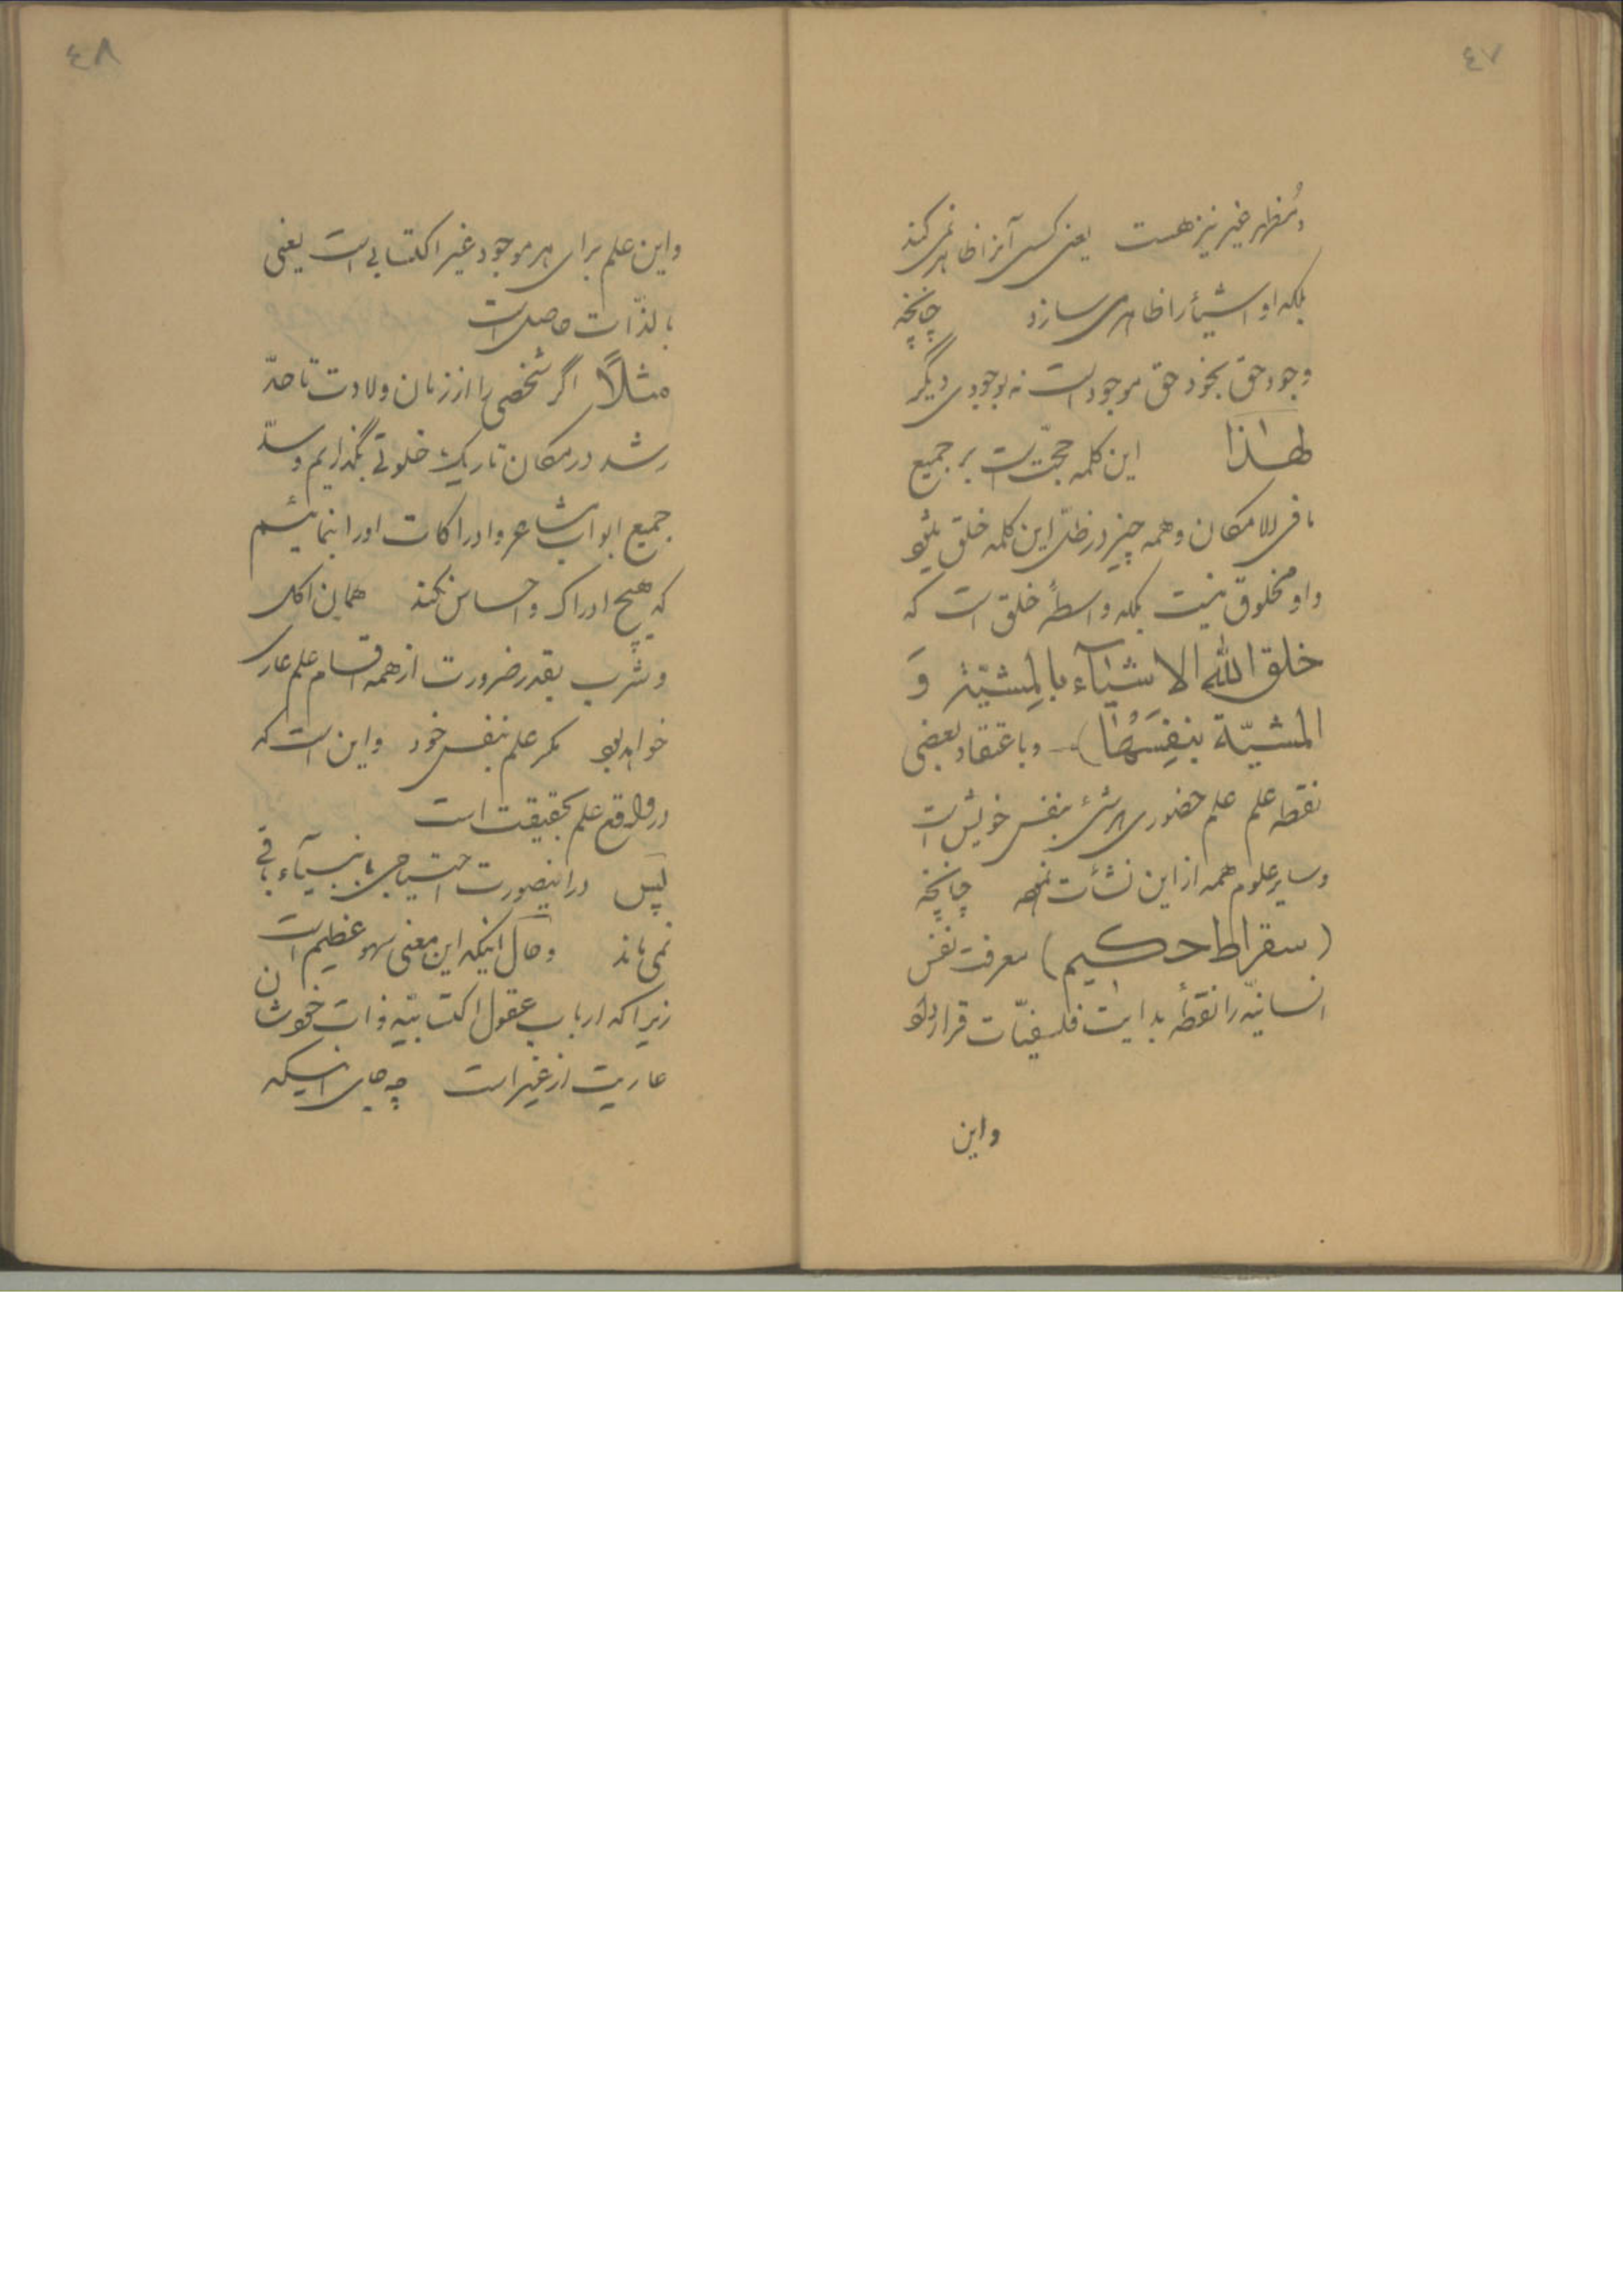 ٤٧
ومُظهر غیر نیز هست یعنی کسی آنرا ظاهر نمی کند
بلکه او اشیأ را ظاهر می سازد چنانچه
وجود حق بخود حق موجود است نه بوجودی دیگر
لهٰذا این کلمه حجّت است بر جمیع
ما فی الامکان و همه چیز در ظلّ این کلمه خلق میشود
واو مخلوق نیست بلکه واسطهٔ خلق است که
خلق الله الاشیآء بالمِشیّة وَ
المشیّة بِنفِسَهُا) و باعتقاد بعضی
نقطه علم علم حضوری هر شیٔ بنفس خویش است
وسایر علوم همه از این نشأت نموده چنانچه
(سقراط حکیم) معرفت نفس
انسانیّه را نقطهٔ بدایت فلسفیّات قرار داده
واین
٤٨
واین علم برای هر موجود غیر اکتسابی است یعنی
بالذّات حاصل است
مثلاً اگر شخصی را از زمان ولادت تا حدّ
رشد در مکان تاریک خلوتی بگذاریم و سدّ
جمیع ابواب مشاعر و ادراکات اورا بنمائیم
که هیچ ادراک و احساس نکند همان اکل
و شرب بقدر ضرورت از همه اقسام علم عاری
خواهد بود مگر علم بنفس خود واین است که
در واقع علم بحقیقت است
پس در اینصورت احتیاجی بانبیآء باقی
نمی ماند وحال اینکه این معنی سهو عظیم است
زیرا که ارباب عقول اکتسابیّه ذات خودشان
عاریت از غیر است چه جای اینکه